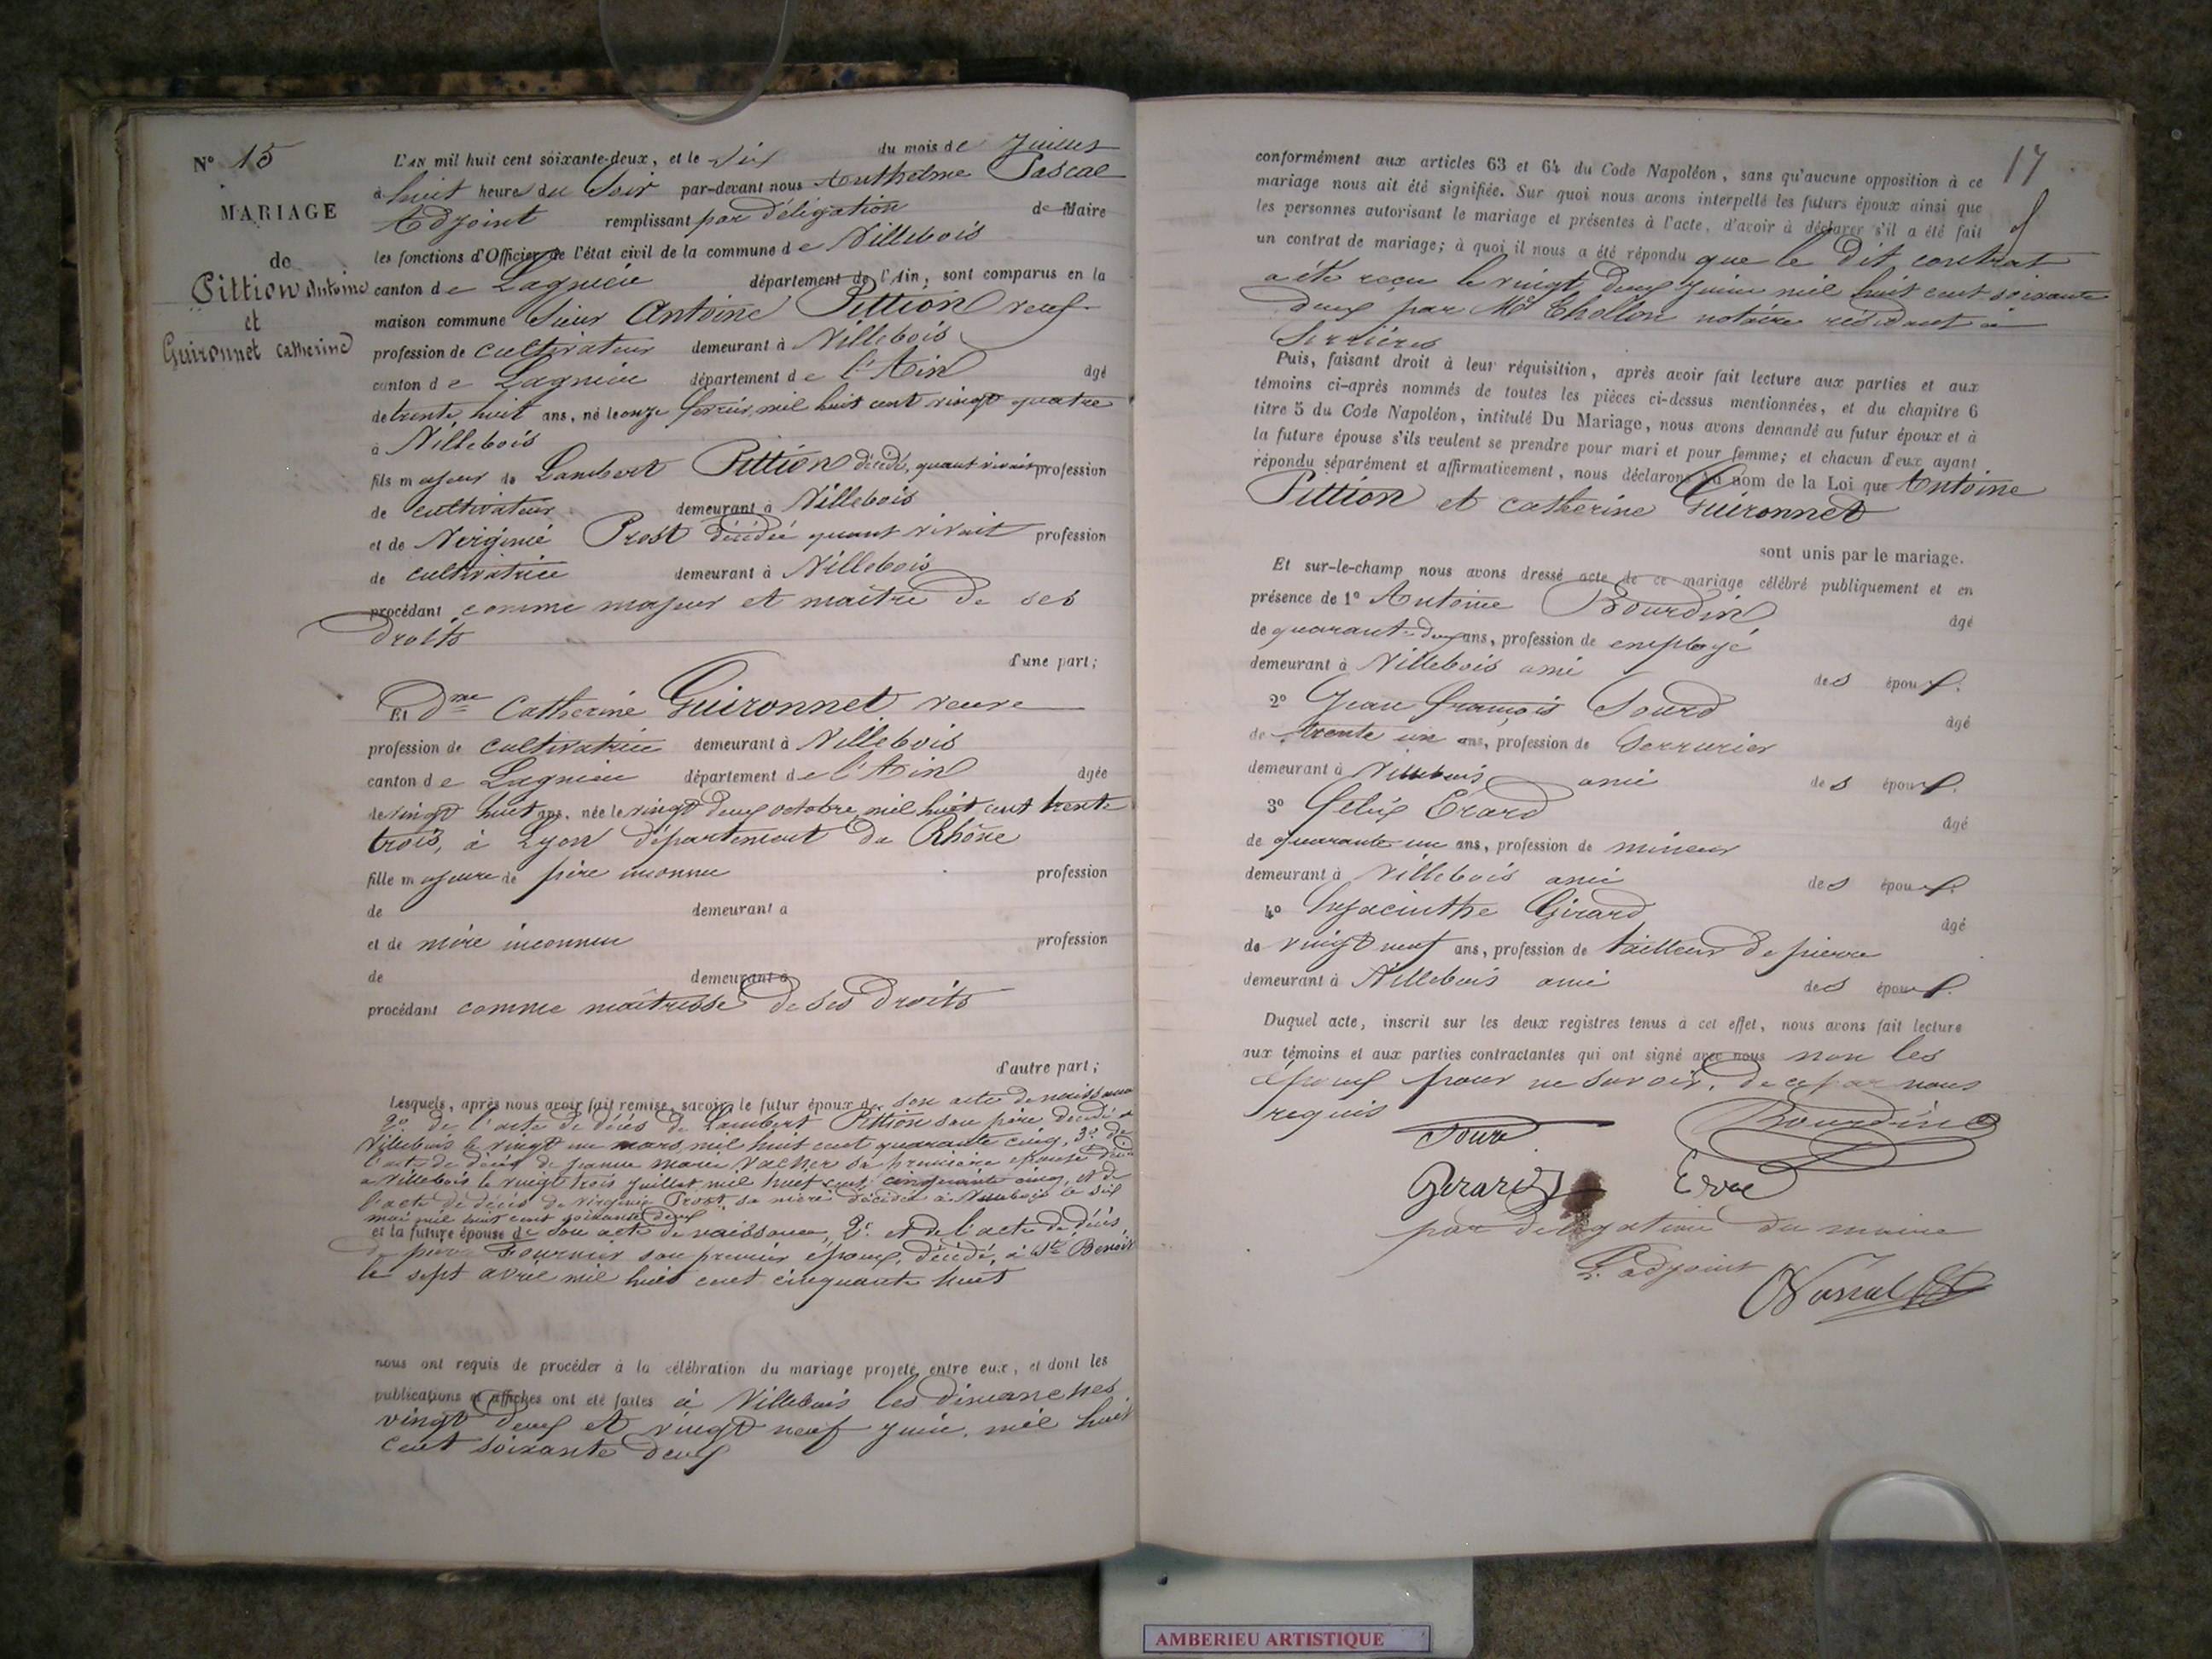 N° 15
MARIAGE
de
Pittion Antoine
et
Guironnet Catherine
L'AN mil huit cent soixante-deux, et le dix du mois de Juillet
à huit heure du Soir par-devant nous Anthelme Pascal
Adjoint remplissant par Délégation de Maire
les fonctions d'Officier de l'état civil de la commune de Villebois
canton de Lagnieu département de l'Ain, sont comparus en la
maison commune Sieur Antoine Pittion veuf
profession de cultivateur demeurant à Villebois
canton de Lagnieu département de l'Ain âgé
de trente huit ans, né le onze février mil huit cent vingt quatre
à Villebois
fils majeur de Lambert Pittion décédé, quant vivait profession
de cultivateur demeurant à Villebois
et de Virginie Prost décédée quant vivait profession
de cultivatrice demeurant à Villebois
procédant comme majeur et maître de ses
droits
d'une part;
Et Dme Catherine Guironnet veuve
profession de cultivatrice demeurant à Villebois
canton de Lagnieu département de l'Ain âgée
de vingt huit ans, née le vingt deux octobre mil huit cent trente
trois, à Lyon département du Rhône
fille majeure de père inconnu profession
de demeurant à
et de mère inconnue profession
de demeurant à
procédant comme maîtresse de ses droits
d'autre part;
Lesquels, après nous avoir fait remise, savoir: le futur époux de son acte de naissance
2° de l'acte de décès de Lambert Pittion son père décédé à
Villebois le vingt un mars mil huit cent quarante cinq, 3° de
l'acte de décès de Jeanne Marie Vacher sa première épouse
à Villebois le vingt trois juillet mil huit cent cinquante cinq, et de
l'acte de décès de Virginie Prost sa mère décédée à Villebois le six
mai mil huit cent soixante deux
et la future épouse de son acte de naissance, 2° et de l'acte de décès
Fournier son premier époux, décédé, à St Benoit
le sept avril mil huit cent cinquante huit
nous ont requis de procéder à la célébration du mariage projeté entre eux, et dont les
publications et affiches ont été faites à Villebois les dimanches
vingt deux et vingt neuf juin, mil huit
cent soixante deux
17
conformément aux articles 63 et 64 du Code Napoléon, sans qu'aucune opposition à ce
mariage nous ait été signifiée. Sur quoi nous avons interpellé les futurs époux ainsi que
les personnes autorisant le mariage et présentes à l'acte, d'avoir à déclarer s'il a été fait
un contrat de mariage; à quoi il nous a été répondu que le dit contrat
a été reçu le vingt deux juin mil huit cent soixante
deux par Me Chollon notaire résidant à
Serrières
Puis, faisant droit à leur réquisition, après avoir fait lecture aux parties et aux
témoins ci-après nommés de toutes les pièces ci-dessus mentionnées, et du chapitre 6
titre 5 du Code Napoléon, intitulé Du Mariage, nous avons demandé au futur époux et à
la future épouse s'ils veulent se prendre pour mari et pour femme; et chacun d'eux ayant
répondu séparément et affirmativement, nous déclarons au nom de la Loi que Antoine
Pittion et Catherine Guironnet
sont unis par le mariage.
Et sur-le-champ nous avons dressé acte de ce mariage célébré publiquement et en
présence de 1° Antoine Bourdin âgé
de quarante deux ans, profession de employé
demeurant à Villebois ami des époux.
2° Jean François Sourd âgé
de trente un ans, profession de Serrurier
demeurant à Villebois ami des époux.
3° Félix Érard âgé
de quarante un ans, profession de mineur
demeurant à Villebois ami des époux.
4° Hyacinthe Girard âgé
de vingt neuf ans, profession de tailleur de pierre
demeurant à Villebois ami des époux.
Duquel acte, inscrit sur les deux registres tenus à cet effet, nous avons fait lecture
aux témoins et aux parties contractantes qui ont signé avec nous non les
époux pour ne savoir, de ce par nous
requis
Bourdin
Gerard
par délégation du maire
L'adjoint
AMBERIEU ARTISTIQUE